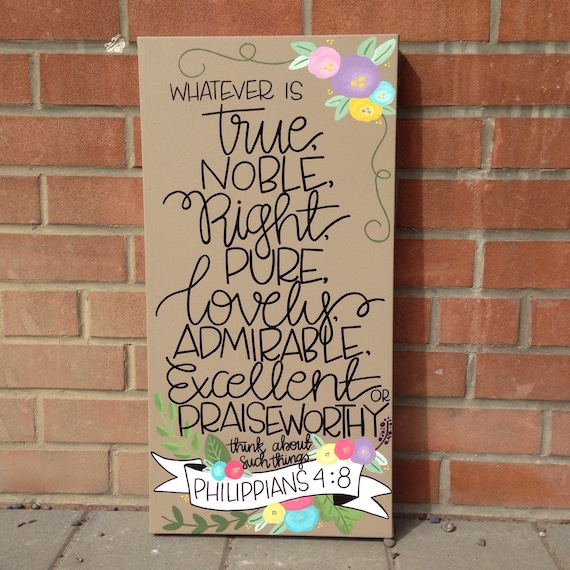 WHATEVER IS
true,
NOBLE,
Right,
PURE,
lovely,
ADMIRABLE,
Excellent OR
PRAISEWORTHY
think about
such things
PHILIPPIANS 4:8